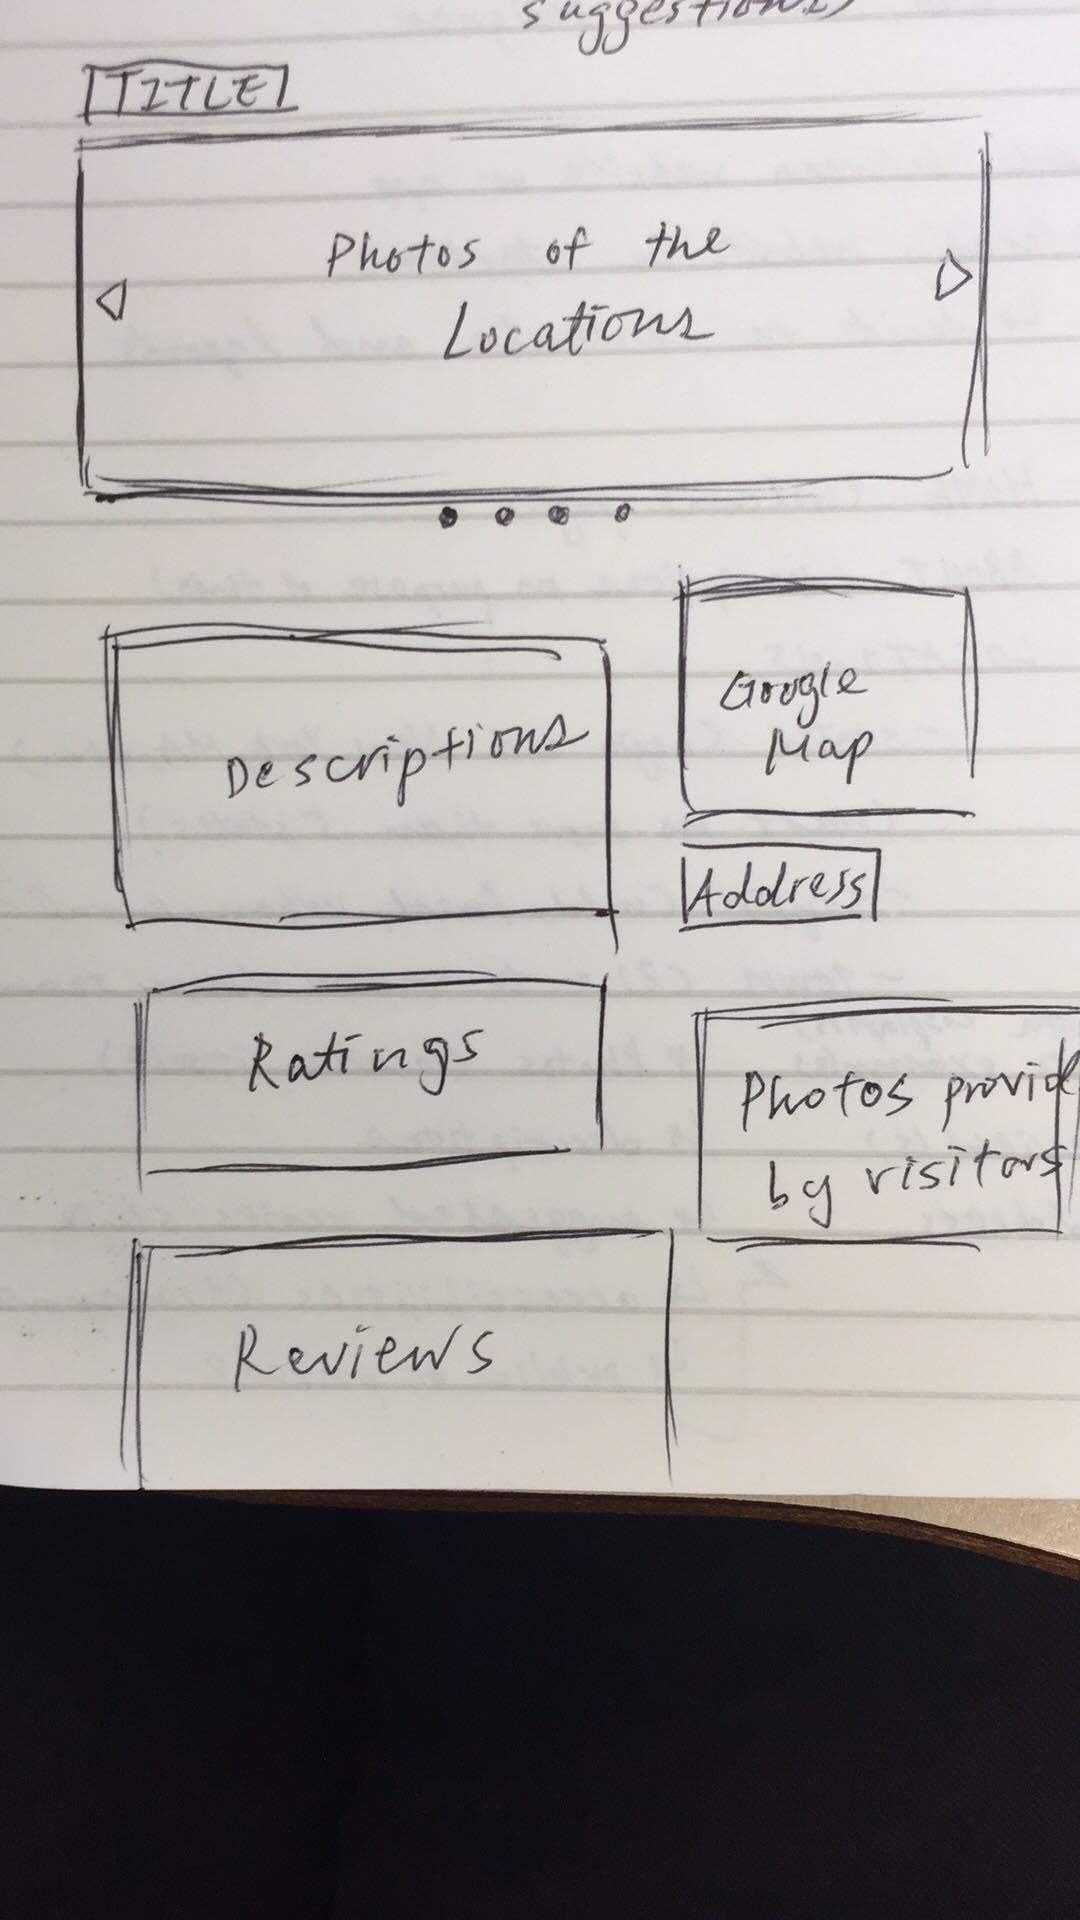 suggestions)
TITLE
Photos of the
Locations
Descriptions
Google
Map
Address
Ratings
Photos provid
by visitors
Reviews